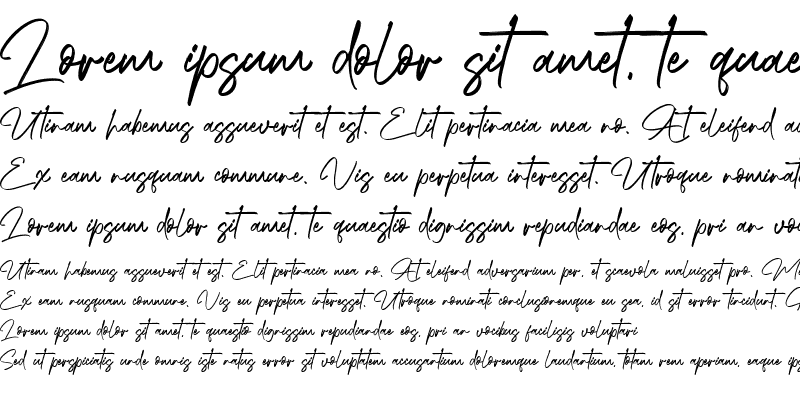 Lorem ipsum dolor sit amet, te quae
Utinam habemus assueverit et est. Elit pertinacia mea no. At eleifend
Ex eam nusquam commune. Vis eu perpetua interesset. Utroque nominati
Lorem ipsum dolor sit amet, te quaestio dignissim repudiandae eos, pri an
Utinam habemus assueverit et est. Elit pertinacia mea no. At eleifend adversarium per, et scaevola maluisset pro.
Ex eam nusquam commune. Vis eu perpetua interesset. Utroque nominati conclusionemque eu sea, id sit error tincidunt.
Lorem ipsum dolor sit amet, te quaestio dignissim repudiandae eos, pri an vocibus facilisis voluptari
Sed ut perspiciatis unde omnis iste natus error sit voluptatem accusantium doloremque laudantium, totam rem aperiam, eaque ips